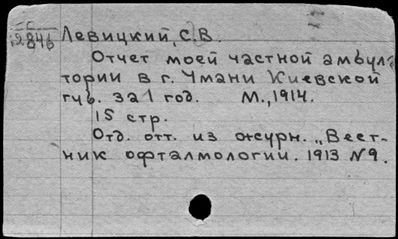 12846 Левицкий, С.В.
Отчет моей частной амбула
тории в г. Умани Киевской
губ. за 1 год. М., 1914.
15 стр.
Отд. отт. из журн. „Вест-
ник офталмологии. 1913 №9.